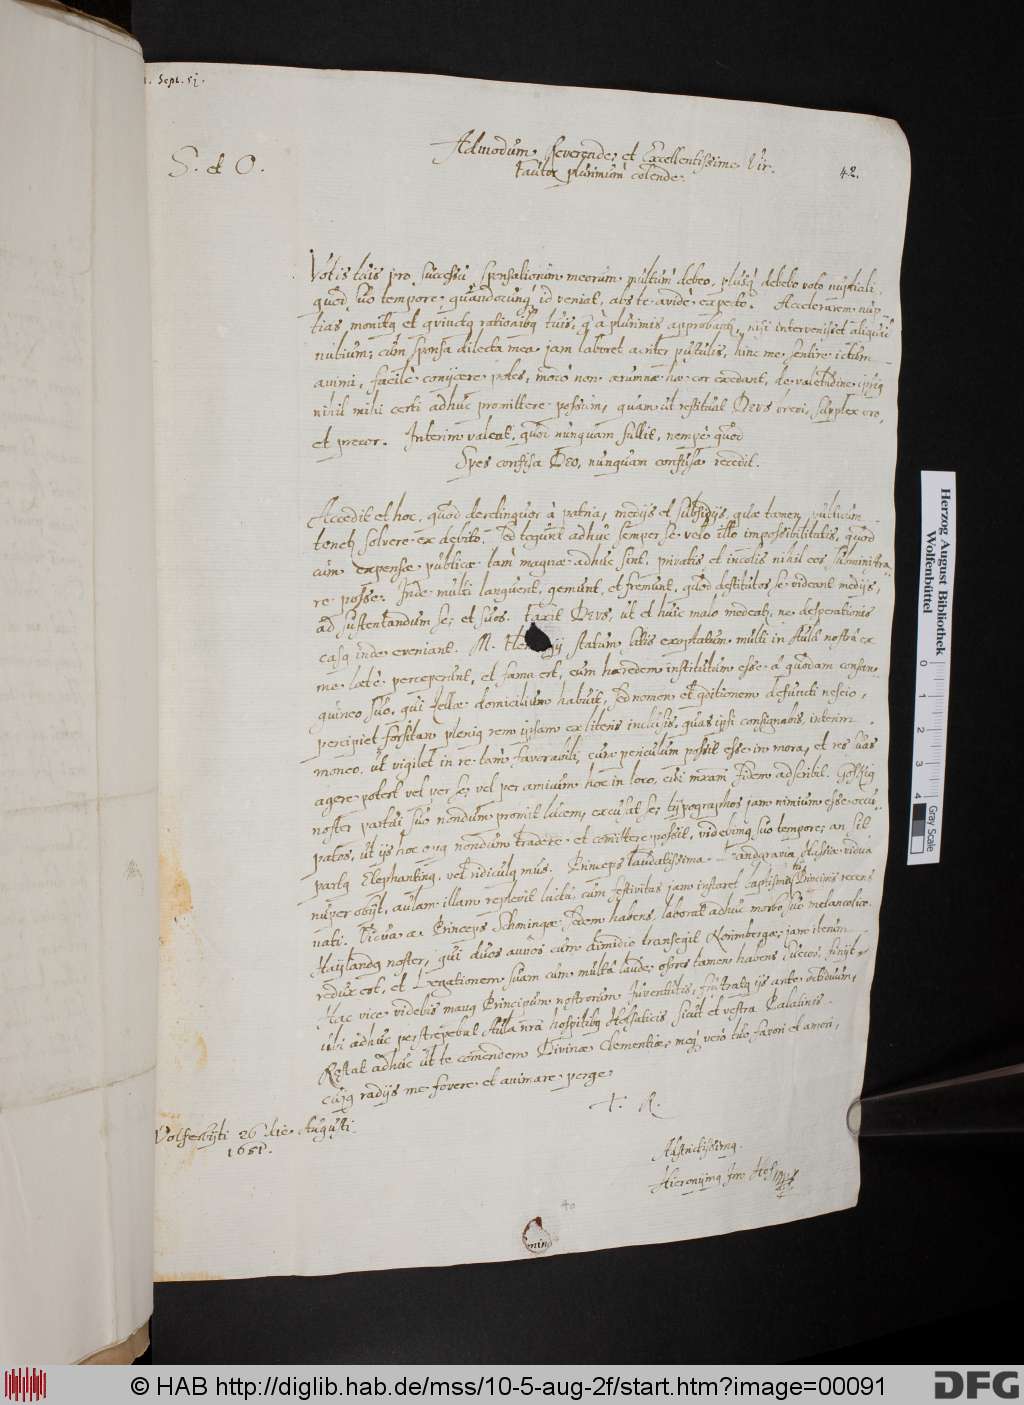 Sept. 51.
S. et O.
Admodum Reverende, et Excellentissime Vir.
Fautor plurimum colende.
42.
Votis tuis pro successu sponsaliorum meorum multum debeo, plusq debebo voto nuptiali,
quod suo tempore, quandocunq id veniat, abs te avide expecto. Accelerarem nup-
tias monitis et quinctq rationibq tuis, q à plurimis approbantr, nisi intervenisset aliquid
nubium; cum sponsa dilecta mea jam laboret acriter pustulis, hinc me sentire ictum
animi, facile conijcere potes, modo non ærumnæ hæ cor exedant, de valetudine ipsiq
nihil mihi certi adhuc promittere possum, quam ut restituat Deus brevi, supplex oro,
et precor. Interim valeat, quod nunquam fallit, nempe quod
Spes confisa Deo, nunquam confusa recedit.
Accedit et hoc, quod derelinquor à patria, medijs et subsidijs, quæ tamen publicum
tenetr solvere ex debito. Sed tegunt adhuc semper se velo illo impossibilitatis, quod
cum expensæ publicæ tam magnæ adhuc sint, privatis et incolis nihil eos subministra-
re posse. Inde multi languent, gemunt, et fremunt, quod destitutos se videant medijs,
ad sustentandum se, et suos. Faxit Deus, ut et huic malo medeatr, ne desperationis
casq inde eveniant. M. statum satis exoptatum multi in Aula nostra ex
me læte perceperunt, et fama est, eum hæredem institutum esse à quodam consan-
guineo suo, qui Zellæ domicilium habuit, sed nomen et conditionem defuncti nescio,
percipiet forsitan pleniq rem ipsam ex literis inclusis, quas ipsi consignabis, interim
moneo, ut vigilet in re tam favorabili, cum periculum possit esse in mora, et res suas
agere potest vel per se, vel per amicum hoc in loco, cui meam fidem adscribit.
noster partui suo nondum promit lucem, excusat se, typographos jam nimium esse occu-
patos, ut ijs hoc opq nondum tradere et comittere possit, videbimq suo tempore, an sit
partq Elephantinq, vel ridiculq mus. Princeps laudatissima Landgravia Hassiæ vidua
nuper obijt, aulam illam replevit luctu, cum festivitas jam instaret baptismatis Principis recens
nati. Vicina Princeps Schoningæ sedem habens, laborat adhuc morbo suo melancolico.
Haylandq noster, qui duos annos cum dimidio transegit Norimbergæ, jam iterum
redux est, et Legationem suam cum multa laude, osores tamen habens Suecos, finijt.
Hac vice videbis manq Principum nostrorum Juventutis, ijs ante octiduum,
ubi adhuc perstrepebat Aula nra hospitibq Hassiacis sicut et vestra Palatinis.
Restat adhuc ut te comendem Divinæ Clementiæ, mei vero tuo favori et amori,
cujq radijs me fovere et animare perge.
T. R.
Wolferbyti 26 die Augusti
1651.
Adstrictissimq.
Hieronymq Im Hof
40
Herzog August Bibliothek
Wolfenbüttel
0 1 2 3 4
Gray Scale
© HAB http://diglib.hab.de/mss/10-5-aug-2f/start.htm?image=00091
DFG